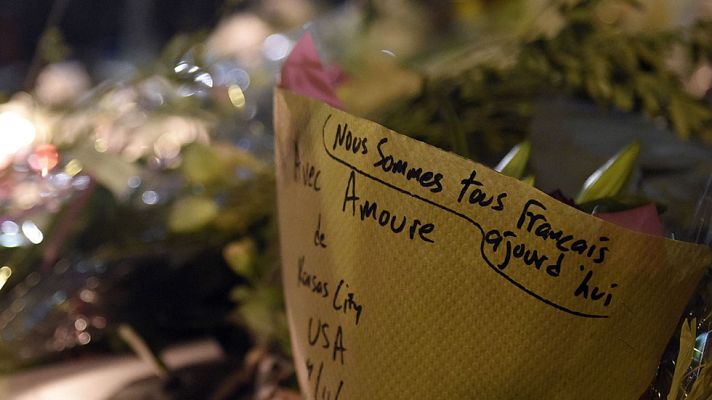 Nous Sommes tous Français
ajourd'hui
Avec Amoure
de
Kansas City
USA